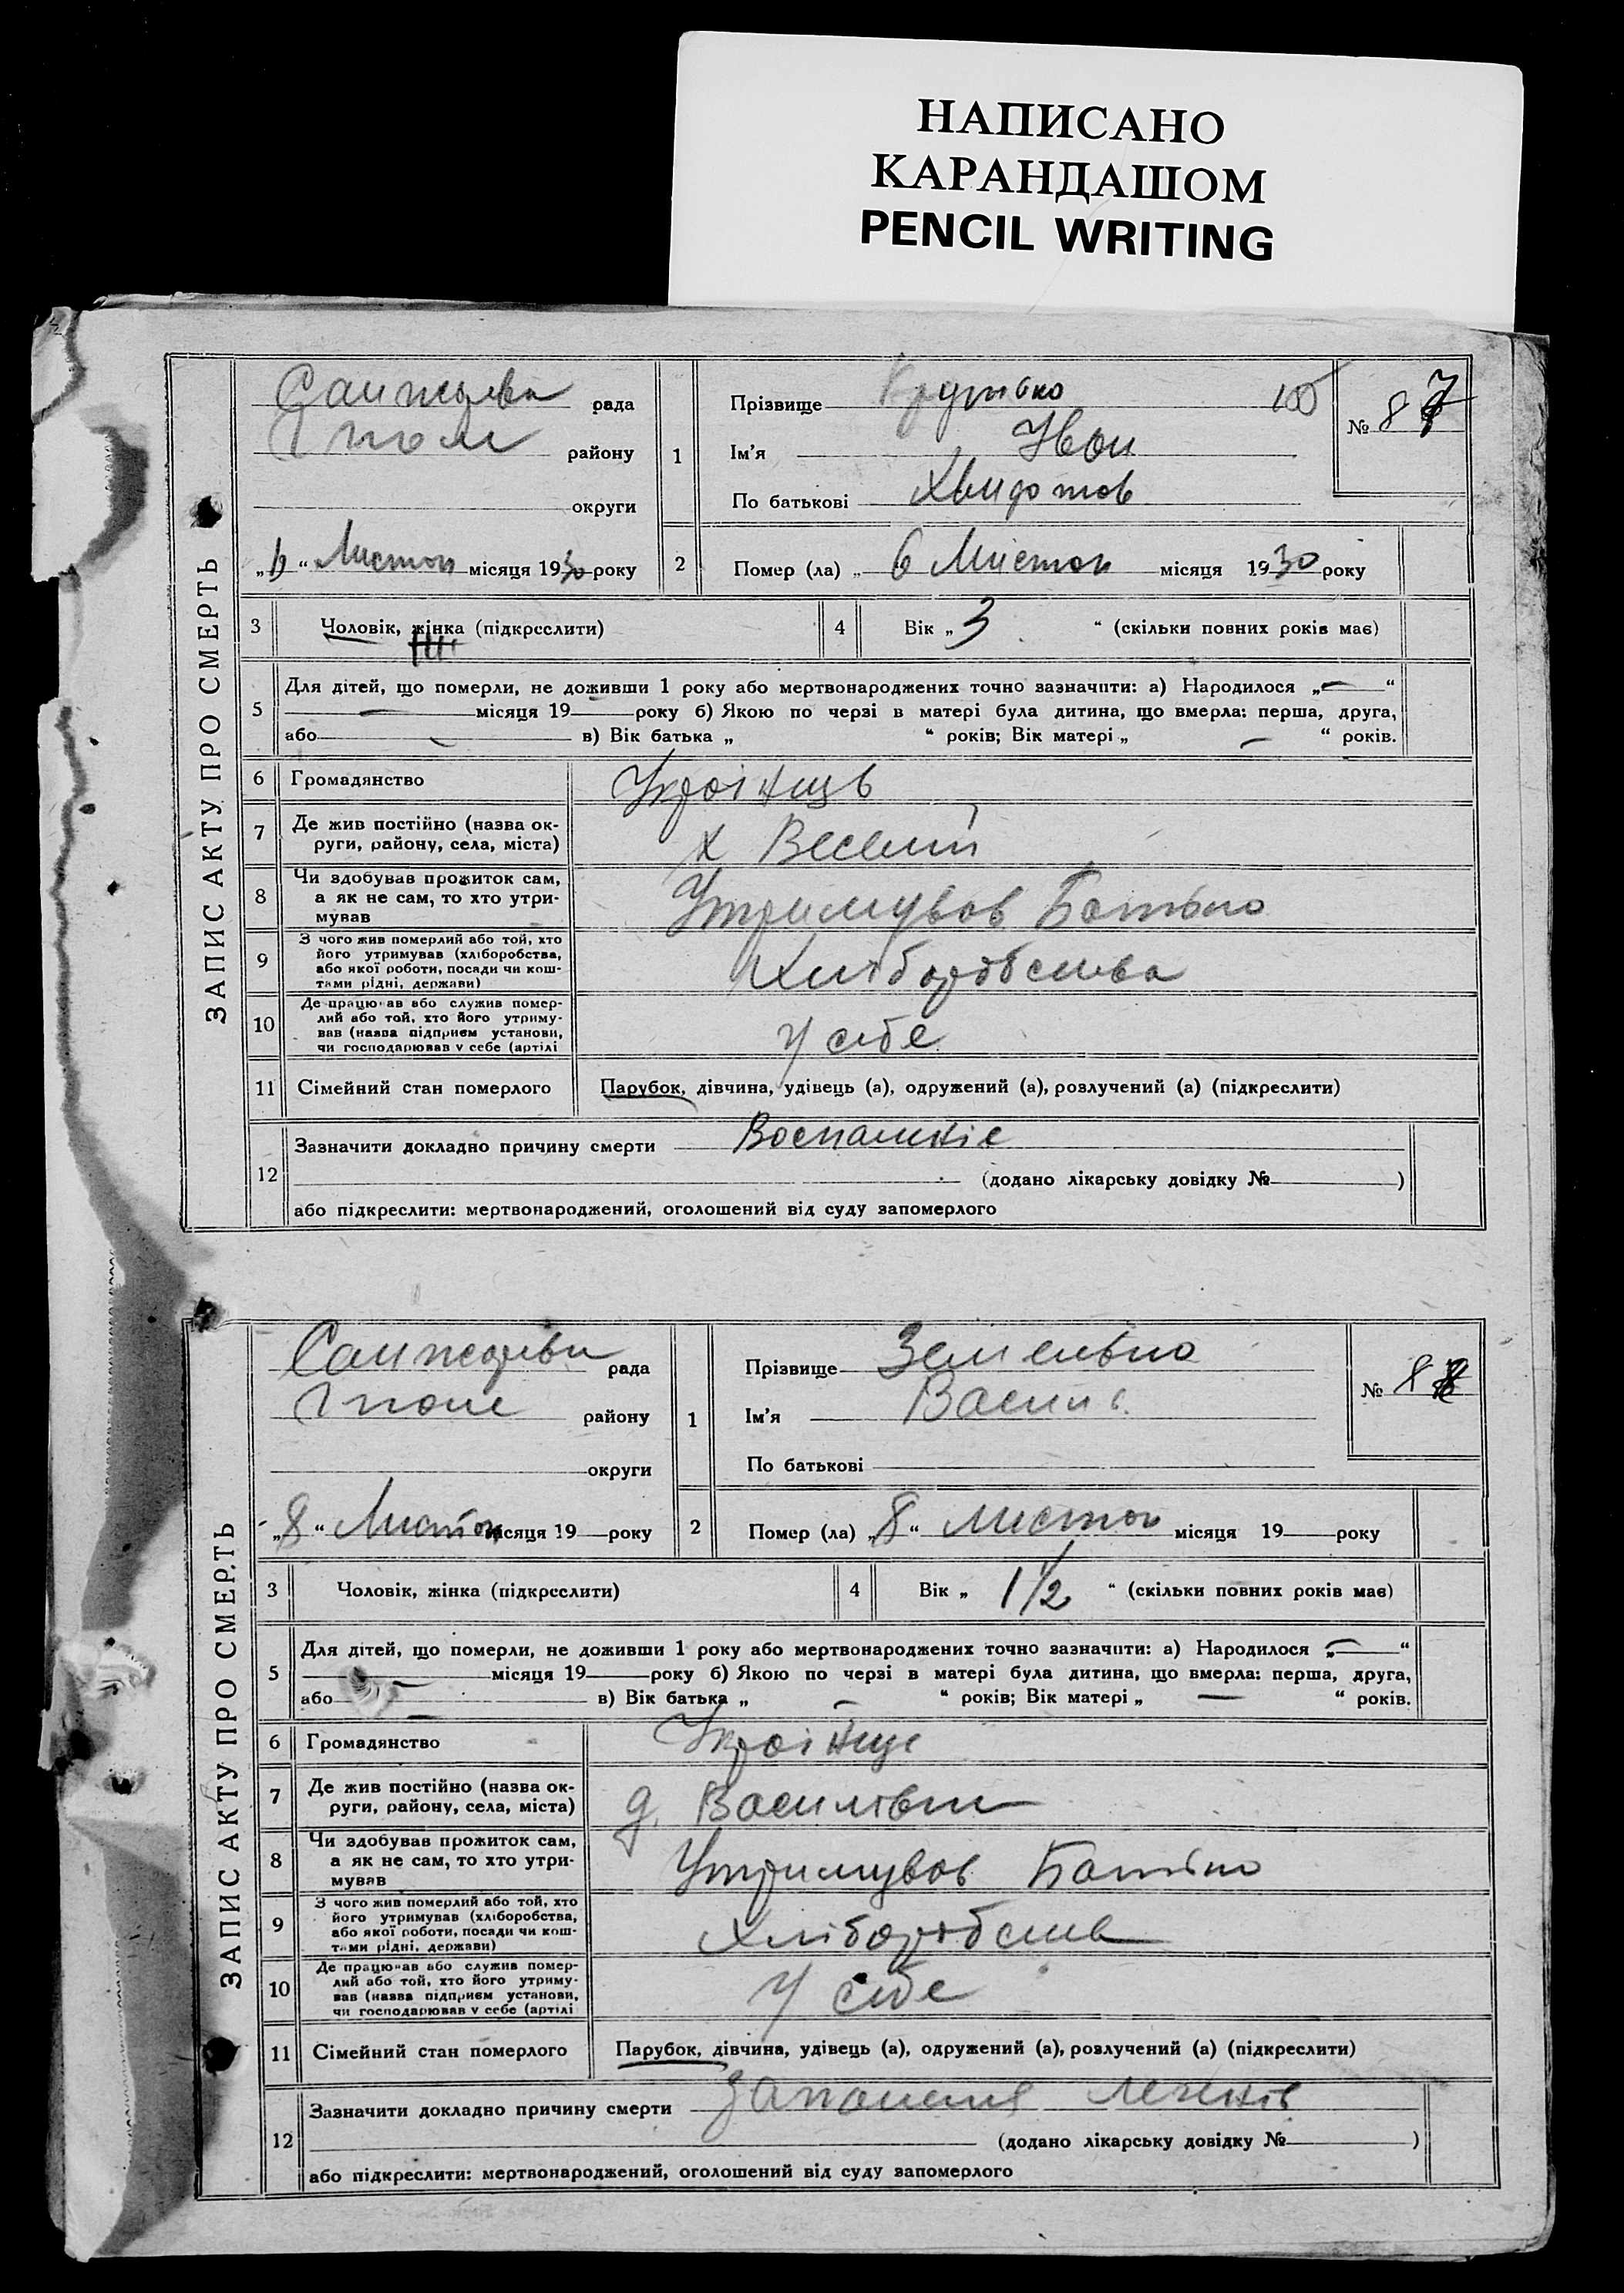 НАПИСАНО
КАРАНДАШОМ
PENCIL WRITING
ЗАПИС АКТУ ПРО СМЕРТЬ
рада
району
округи
„6“ Листоп місяця 1930 року
1
Прізвище
Ім'я Іван
По батькові
№ 87
2
Помер (ла) „6 Листоп місяця 1930 року
3 Чоловік, жінка (підкреслити)
4 Вік „3 “ (скільки повних років має)
5
Для дітей, що померли, не доживши 1 року або мертвонароджених точно зазначити: а) Народилося „—“
— місяця 19 року б) Якою по черзі в матері була дитина, що вмерла: перша, друга,
або — в) Вік батька „ “ років; Вік матері „ — “ років.
6 Громадянство Украінець
7 Де жив постійно (назва ок-
руги, району, села, міста) х Веселий
8 Чи здобував прожиток сам,
а як не сам, то хто утри-
мував Утримував Батько
9 З чого жив померлий або той, хто
його утримував (хліборобства,
або якої роботи, посади чи кош-
тами рідні, держави) Хліборобства
10 Де працював або служив помер-
лий або той, хто його утриму-
вав (назва підприєм установи,
чи господарював у себе (артілі У себе
11 Сімейний стан померлого Парубок, дівчина, удівець (а), одружений (а), розлучений (а) (підкреслити)
12
Зазначити докладно причину смерти Воспаленіє
(додано лікарську довідку № )
або підкреслити: мертвонароджений, оголошений від суду запомерлого
ЗАПИС АКТУ ПРО СМЕРТЬ
рада
району
округи
„8“ Листоп місяця 19 — року
1
Прізвище
Ім'я Василь
По батькові
№ 88
2
Помер (ла) „8“ Листоп місяця 19 року
3 Чоловік, жінка (підкреслити)
4 Вік „ 1 1/2 “ (скільки повних років має)
5
Для дітей, що померли, не доживши 1 року або мертвонароджених точно зазначити: а) Народилося „—“
— місяця 19 року б) Якою по черзі в матері була дитина, що вмерла: перша, друга,
або — в) Вік батька „ — “ років; Вік матері „ — “ років.
6 Громадянство Украінець
7 Де жив постійно (назва ок-
руги, району, села, міста) д. Василівки
8 Чи здобував прожиток сам,
а як не сам, то хто утри-
мував Утримував Батько
9 З чого жив померлий або той, хто
його утримував (хліборобства,
або якої роботи, посади чи кош-
тами рідні, держави) Хліборобства
10 Де працював або служив помер-
лий або той, хто його утриму-
вав (назва підприєм установи,
чи господарював у себе (артілі У себе
11 Сімейний стан померлого Парубок, дівчина, удівець (а), одружений (а), розлучений (а) (підкреслити)
12
Зазначити докладно причину смерти Запаленя легенів
(додано лікарську довідку № )
або підкреслити: мертвонароджений, оголошений від суду запомерлого